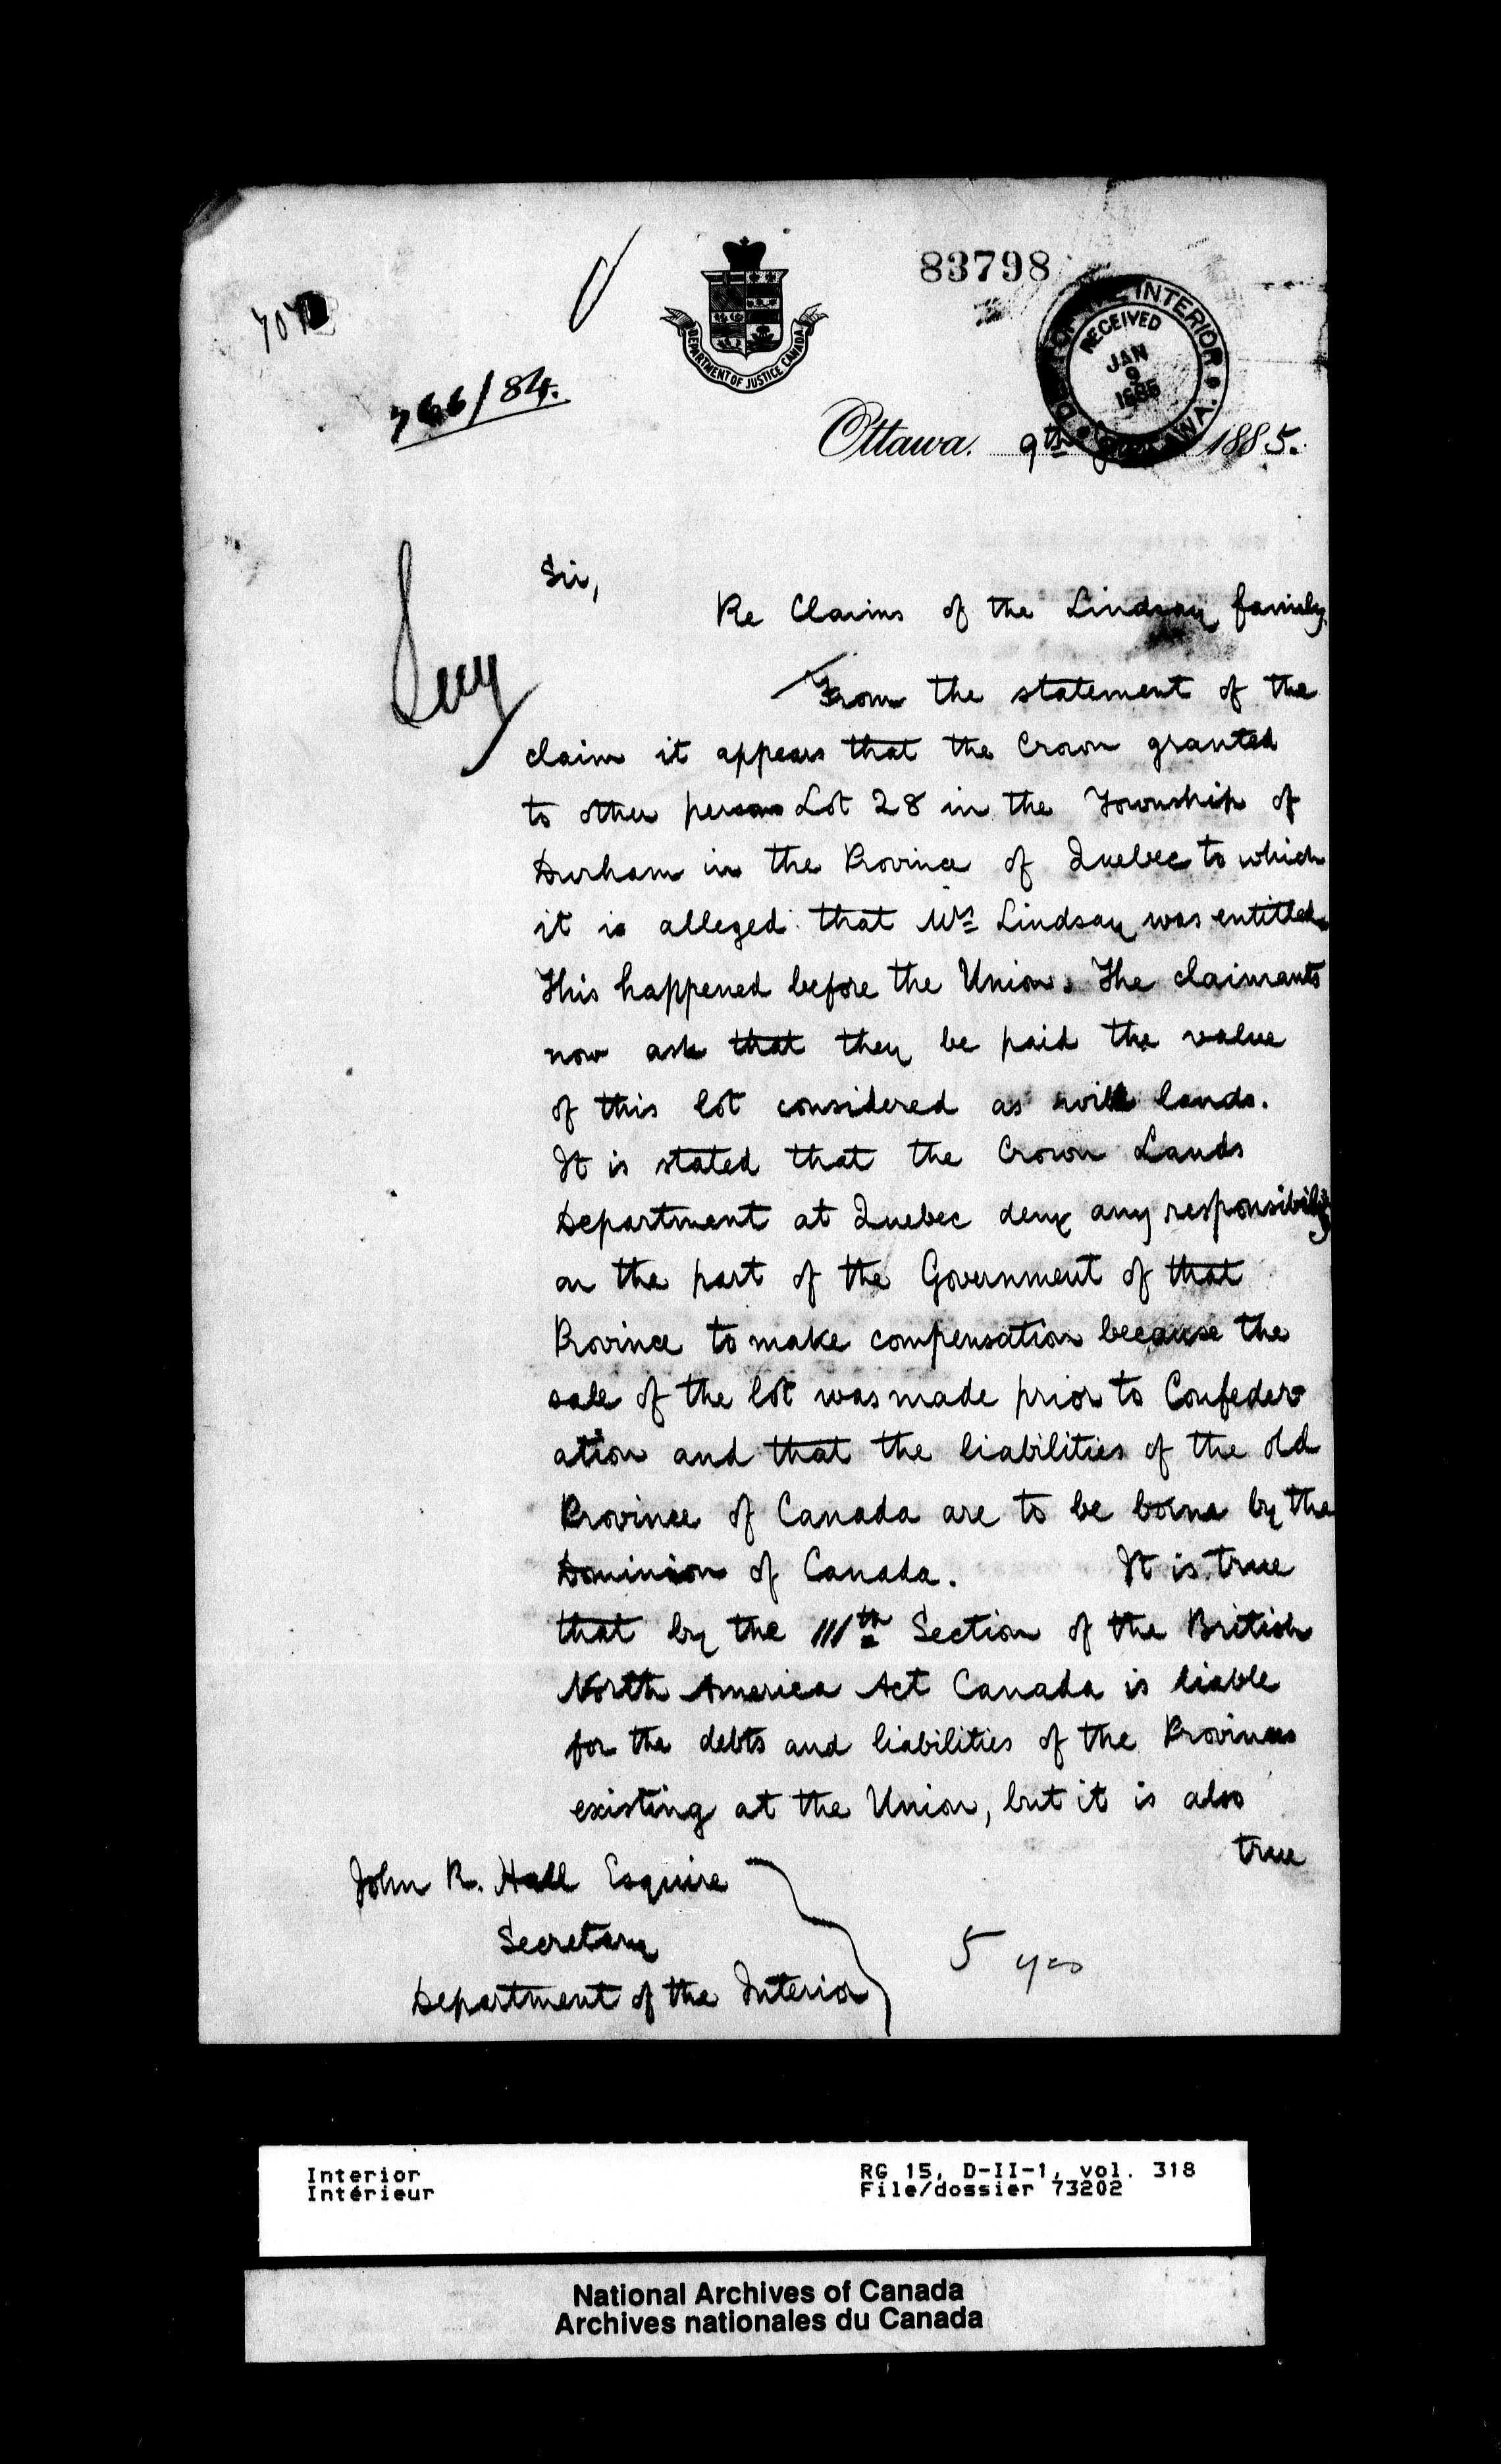 83798
DEPARTMENT OF JUSTICE CANADA
INTERIOR
RECEIVED
JAN
9
1885
766/84.
Ottawa. 9th 1885.
Sir,
Re Claims of the Lindsay family.
From the statement of the
claim it appears that the Crown granted
to other persons Lot 28 in the Township of
Durham in the Province of Quebec to which
it is alleged that Mrs Lindsay was entitled.
This happened before the Union. The claimants
now ask that they be paid the value
of this lot considered as wild lands.
It is stated that the Crown Lands
Department at Quebec deny any responsibility
on the part of the Government of that
Province to make compensation because the
sale of the lot was made prior to Confeder
ation and that the liabilities of the old
Province of Canada are to be borne by the
Dominion of Canada. It is true
that by the 111th Section of the British
North America Act Canada is liable
for the debts and liabilities of the Provinces
existing at the Union, but it is also
true
John R. Hall Esquire
Secretary
Department of the Interior
5
Interior
Intérieur
RG 15, D-II-1, vol. 318
File/dossier 73202
National Archives of Canada
Archives nationales du Canada